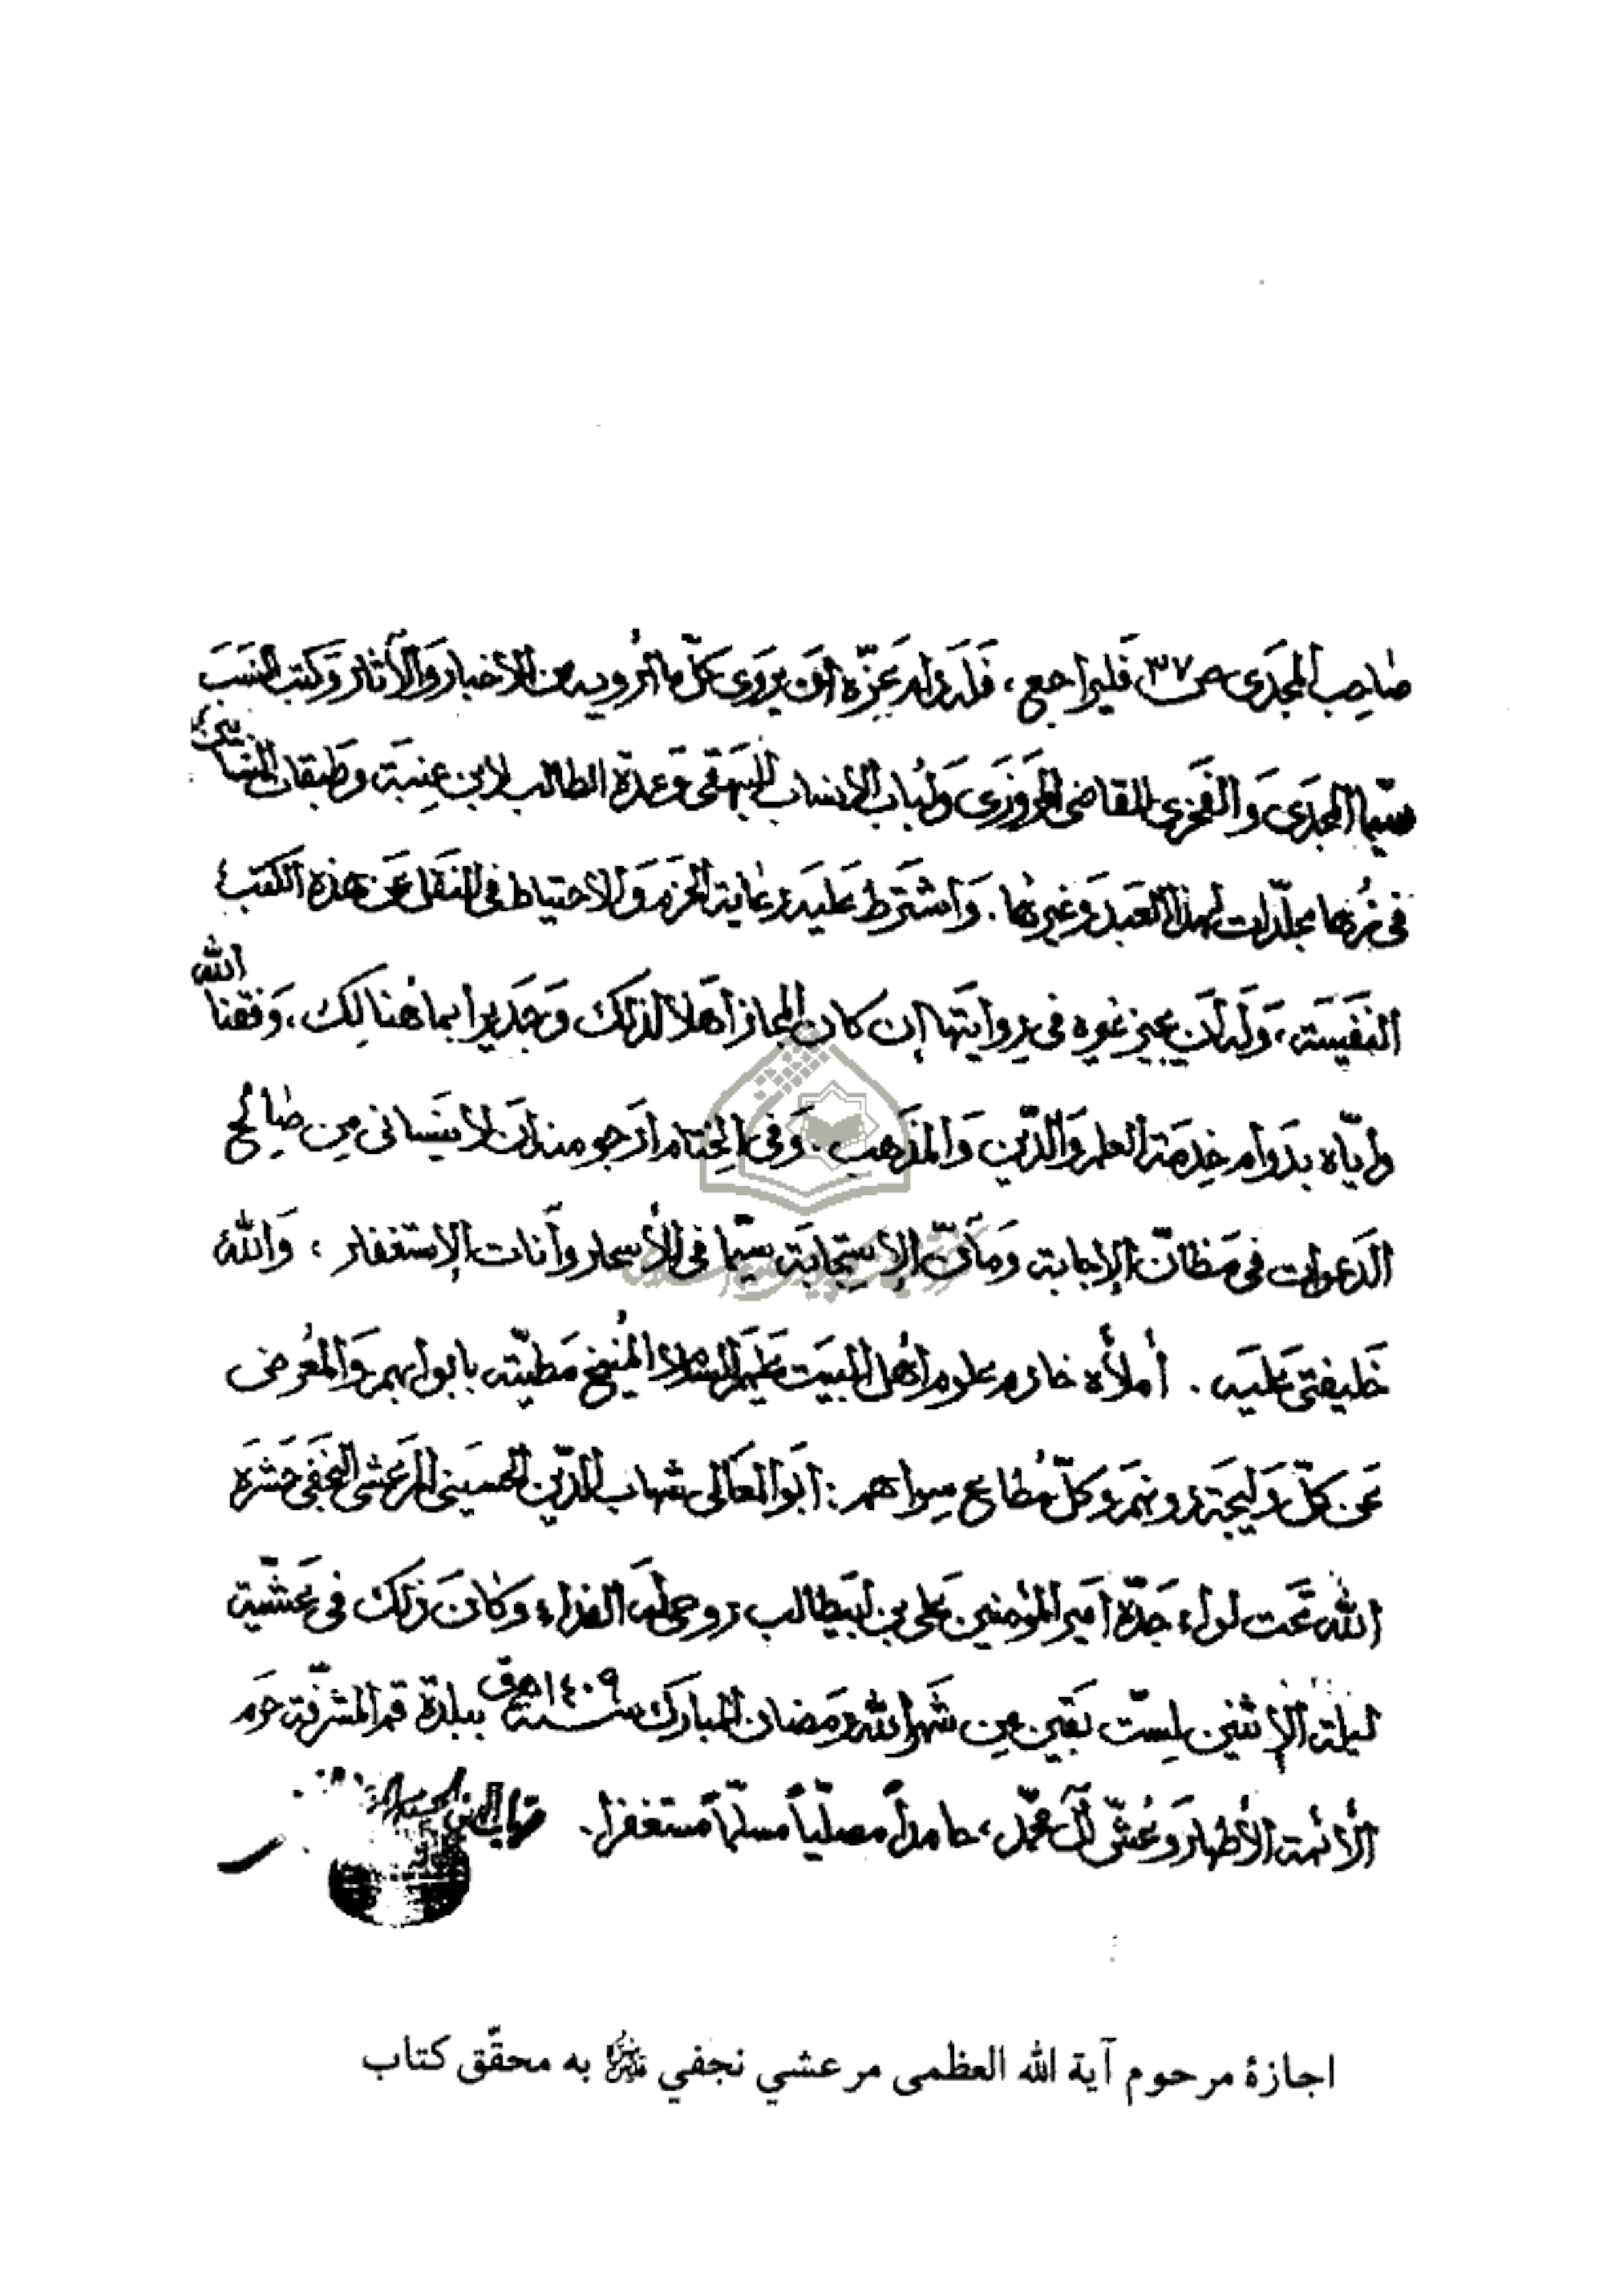 صاحب المجدى ص ٣٧ فليراجع ، فله دام عزّه أن يروى كلّ ما أرويه من الأخبار والآثار وكتب النسب
سيّما المجدى والفخرى للقاضى المروزى ولباب الأنساب للبيهقى وعمدة الطالب لابن عنبة وطبقات النسّابين
مجلّدات لهذا العبد وغيرها . وأشترط عليه رعاية الحزم والاحتياط فى النقل عن هذه الكتب
النفيسة ، وله أن يجيز غيره فى روايتها إن كان المجاز أهلا لذلك وجديرا بما هنالك ، وفّقنا الله
وإيّاه بدوام خدمة العلم والدّين والمذهب . وفى الختام أرجو منه أن لا ينسانى من صالح
الدعوات فى مظانّ الإجابة ومآنّ الإستجابة سيّما فى الأسحار وآنات الإستغفار ، والله
خليفتى عليه . أملأه خادم علوم أهل البيت عليهم السلام المنيخ مطيّته بابوابهم والمعرض
عن كلّ وليجة دونهم وكلّ مطاع سواهم : ابو المعالى شهاب الدّين الحسينى المرعشى النجفى حشره
الله تحت لواء جدّه أمير المؤمنين على بن ابيطالب روحى له الفداء وكان ذلك فى عشيّة
ليلة الإثنين لستّ بقين من شهر الله رمضان المبارك سنة ١٤٠٩ هق ببلدة قم المشرّفة حرم
الأئمة الأطهار وعشّ آل محمّد ، حامداً مصلّياً مسلّماً مستغفرا .
شهاب الدين الحسينى
اجازۀ مرحوم آية الله العظمى مرعشي نجفي به محقّق كتاب